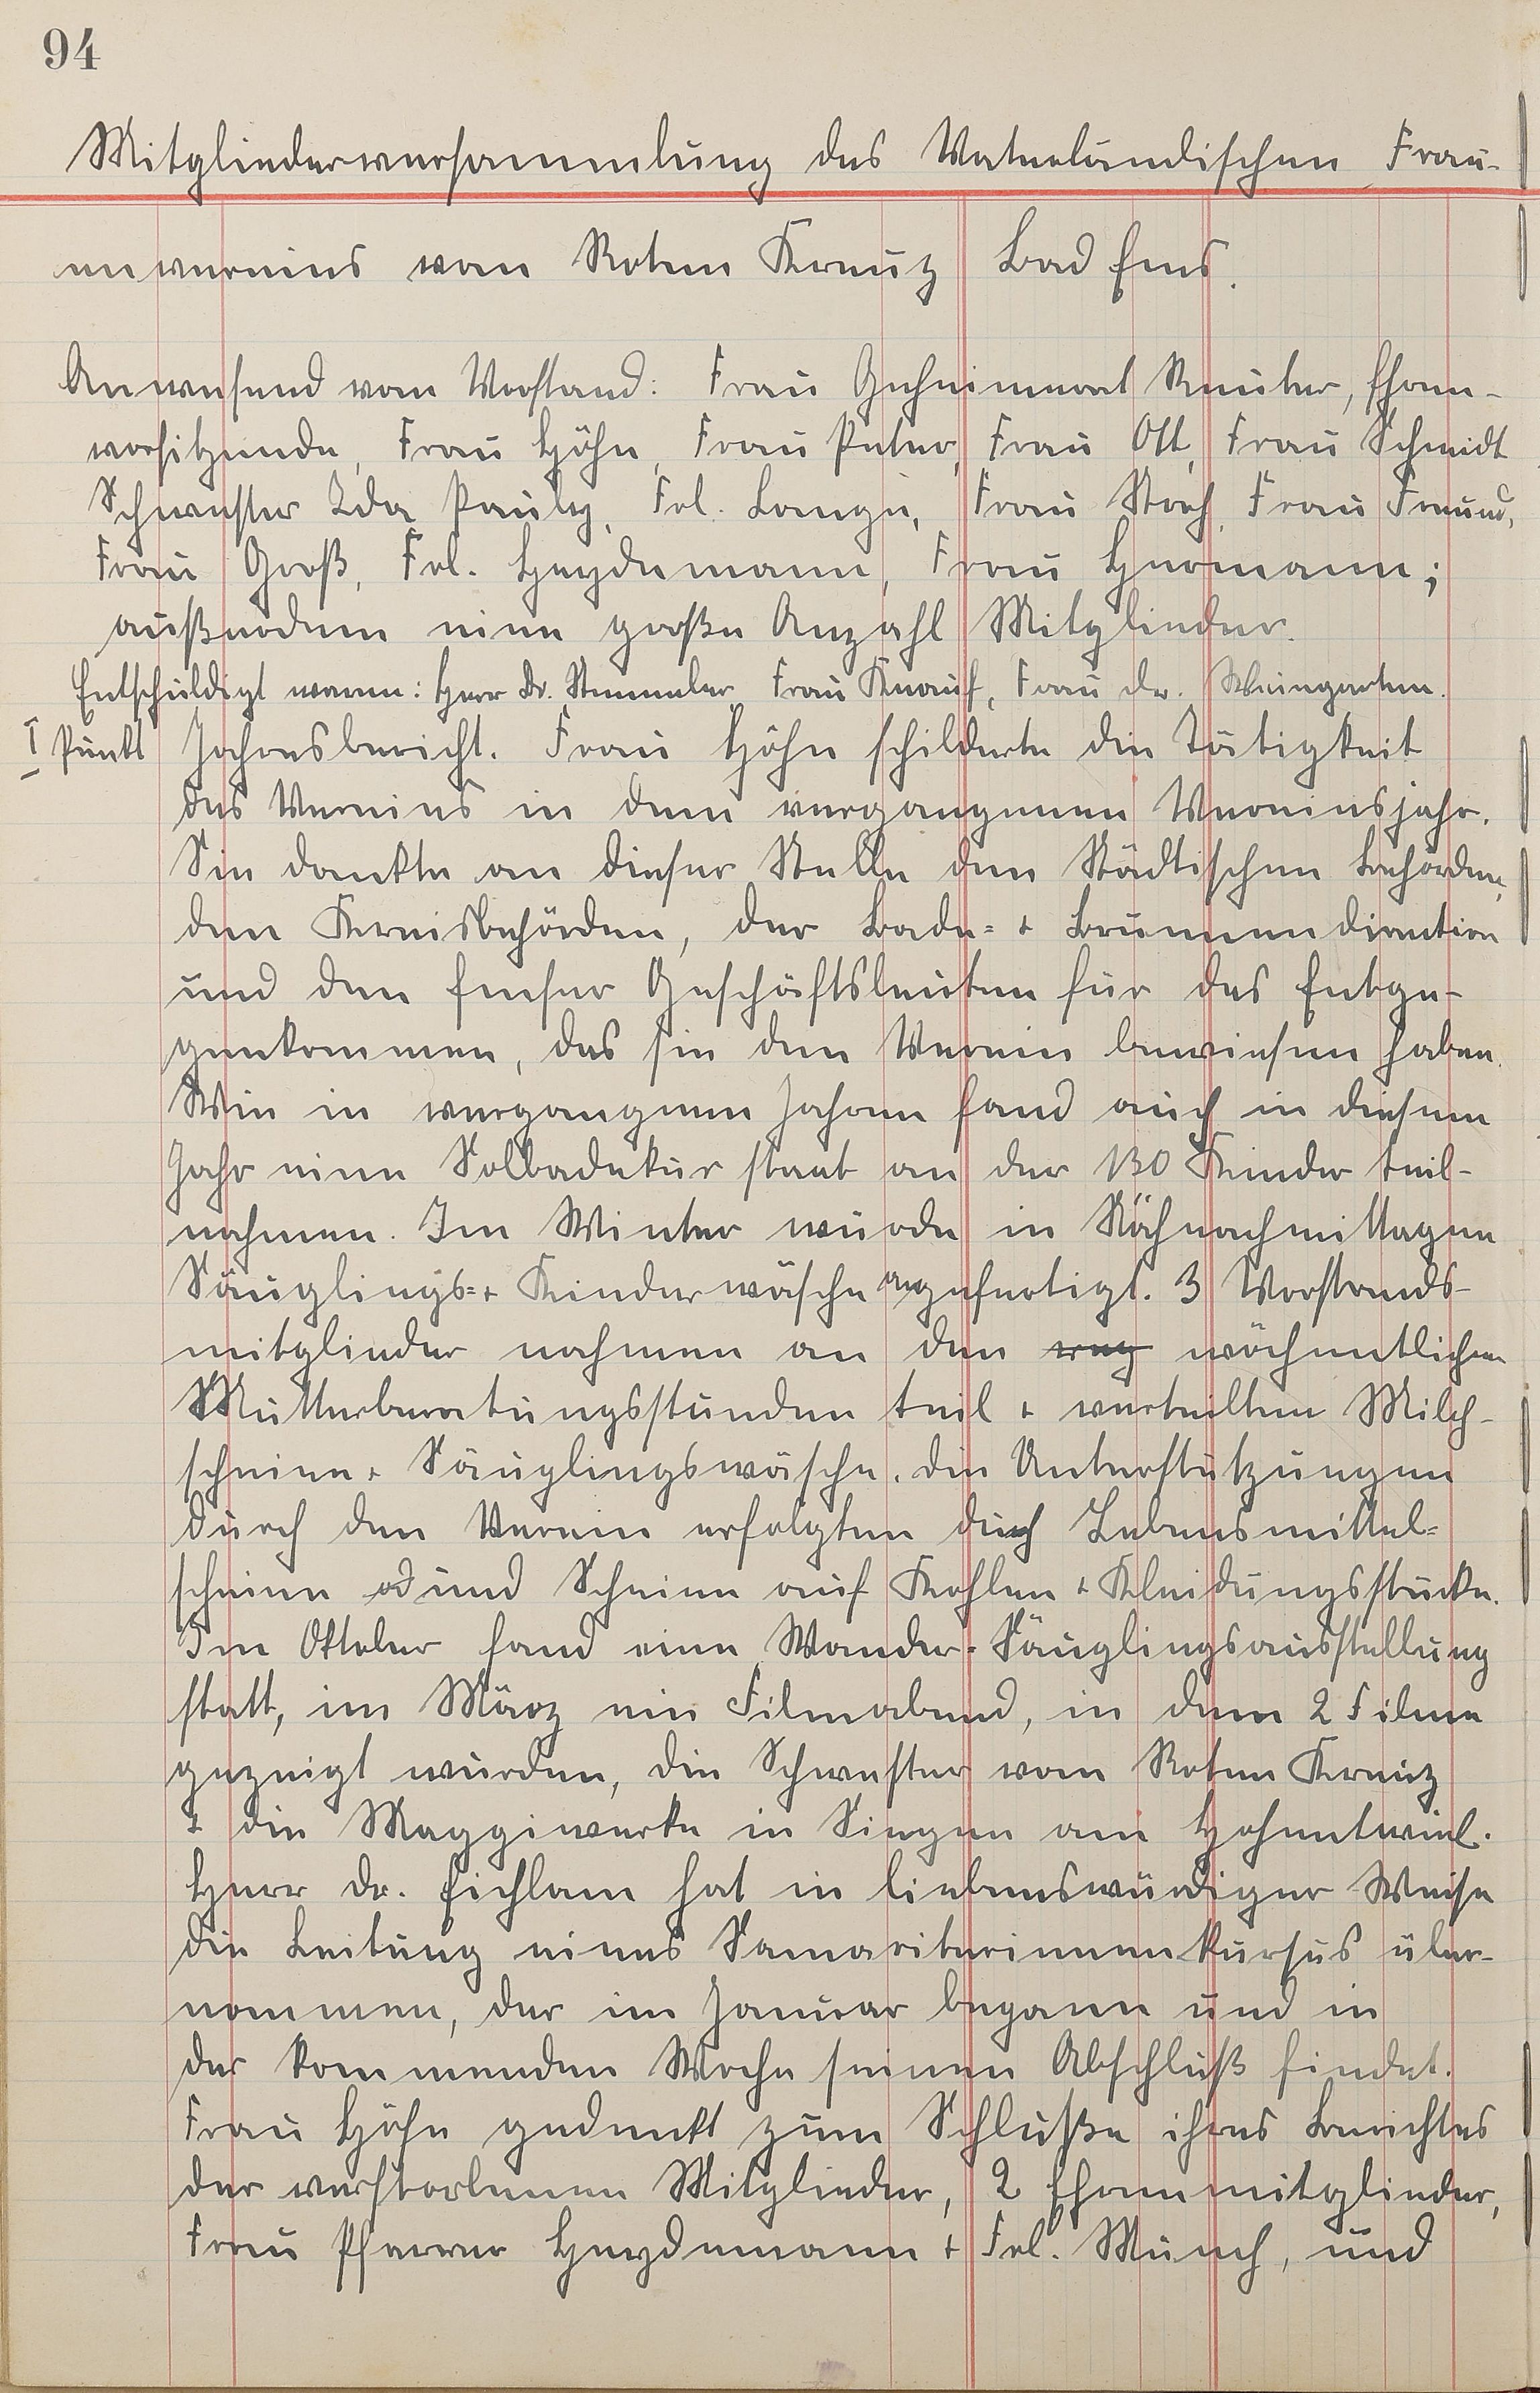 94
Mitgliederversammlung des Vaterländischen Frau-
envereins vom Roten Kreuz Bad Ems.
Anwesend vom Vorstand: Frau Geheimerat Reuter, Ehren-
vorsitzende, Frau Höhn, Frau Peter, Frau Ott, Frau Schmidt
Schwester Ida Pauly, Frl. Lange, Frau Stoch, Frau Freund,
Frau Groß, Frl. Heydemann, Frau Hermann;
außerdem eine große Anzahl Mitglieder.
Entschuldigt waren: Herr Dr. Stemmler, Frau Knauf, Frau Dr. Weingarten.
I Punkt Jahresbericht. Frau Höhn schilderte die Tätigkeit
des Vereins in dem vergangenen Vereinsjahr.
Sie dankte an dieser Stelle den Städtischen Behörden,
den Kreisbehörden, der Bade= + Brunnendirection
und den Emser Geschäftsleuten für das Entge-
genkommen, das sie dem Verein bewiesen haben.
Wie in vergangenen Jahren fand auch in diesem
Jahr eine Solbadekur staat an der 130 Kinder teil-
nahmen. Im Winter wurde in Nähnachmittagen
Säuglings=+ Kinderwäsche angefertigt. 3 Vorstands-
mitglieder nahmen an den weg wöchentlichen
Mutterberatungsstunden teil + verteilten Milch-
scheine + Säuglingswäsche. Die Unterstützungen
durch den Verein erfolgten durch Lebensmittel=
scheine od und Scheine auf Kohlen + Kleidungsstücke.
Im Oktober fand eine Wander-Säuglingsausstellung
statt, im März ein Filmabend, in dem 2 Filme
gezeigt wurden, die Schwester vom Roten Kreuz
+ die Maggiwerke in Singen am Hohentwiel.
Herr Dr. Eichlam hat in liebenswürdiger Weise
die Leitung eines Samariterinnenkursus über-
nommen, der im Januar begann und in
der kommenden Woche seinen Abschluß findet.
Frau Höhn gedenkt zum Schluße ihres Berichtes
der verstorbenen Mitglieder, 2 Ehrenmitglieder,
Frau Pfarrer Heydemann + Frl. Münch, und